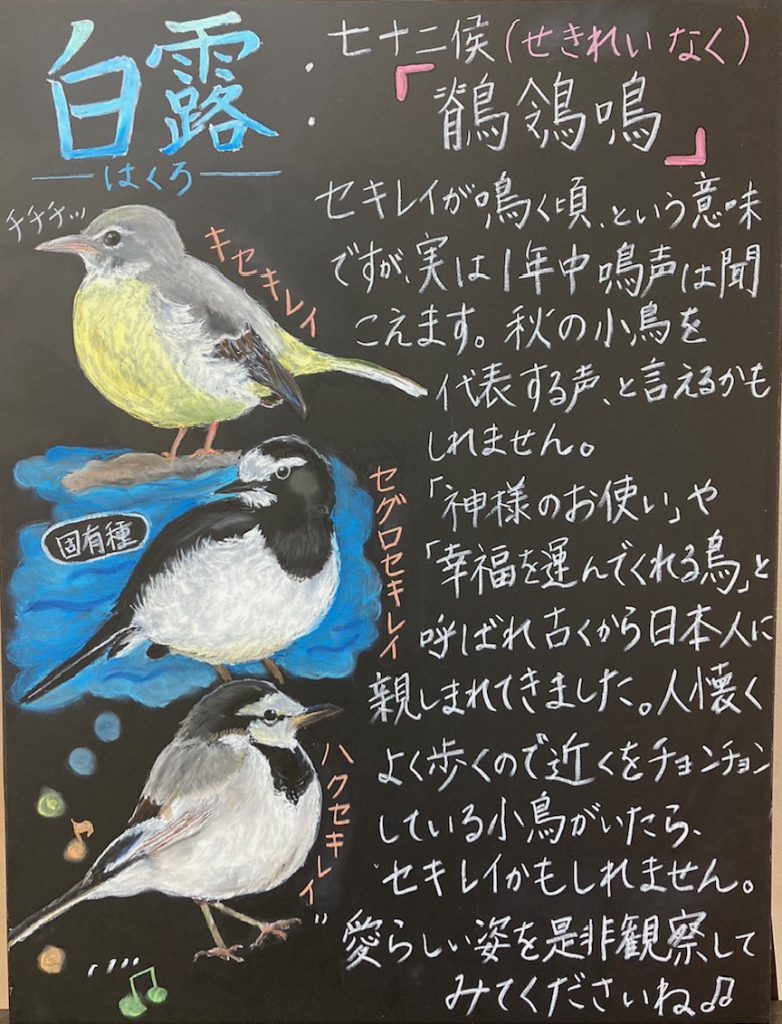 白露
はくろ
七十二侯(せきれい なく)
『鶺鴒鳴』
セキレイが鳴く頃、という意味
ですが、実は1年中鳴声は聞
こえます。秋の小鳥を
代表する声、と言えるかも
しれません。
「神様のお使い」や
「幸福を運んでくれる鳥」と
呼ばれ古くから日本人に
親しまれてきました。人懐く
よく歩くので近くをチョンチョン
している小鳥がいたら、
セキレイかもしれません。
愛らしい姿を是非観察して
みてくださいね♫
チチチッ
キセキレイ
固有種
セグロセキレイ
ハクセキレイ